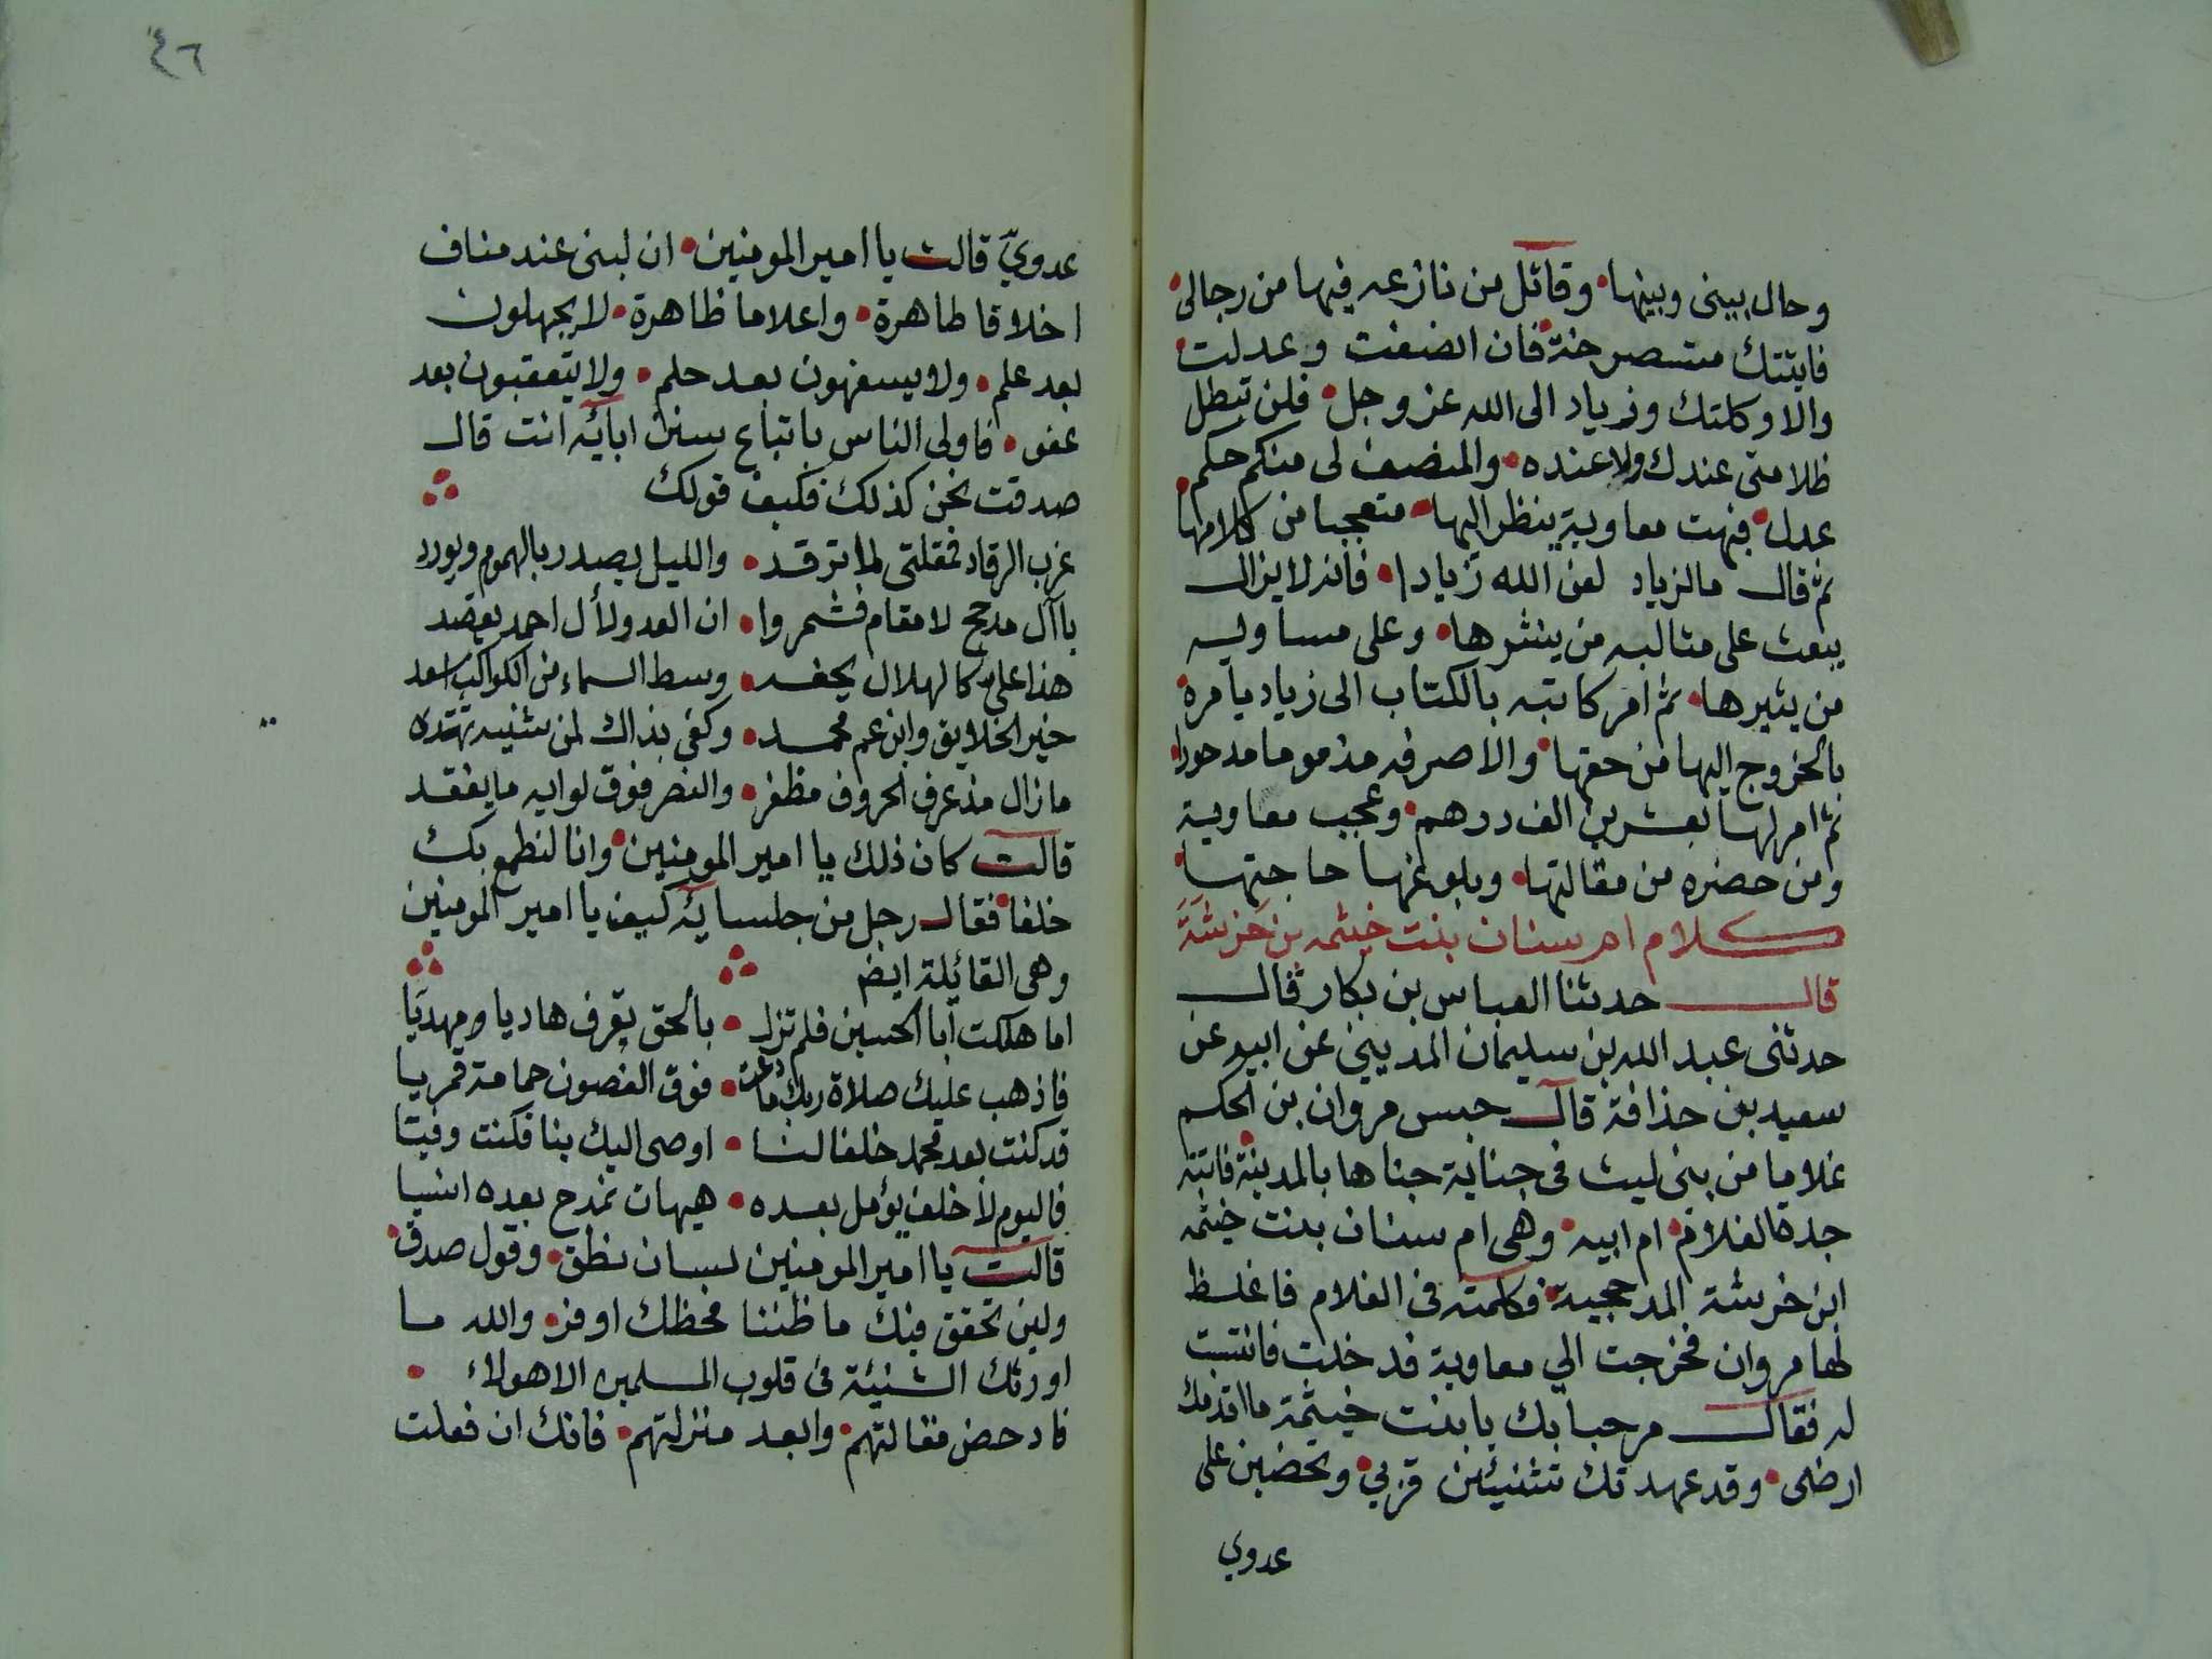 وحال بيني وبينها • وقاتل من نازعه فيها من رجالى •
فاتيتك مستصرخة • فان انصفت وعدلت •
والا وكلتك وزياد الى الله عز وجل • فلن تبطل
ظلامتى عندك ولا عنده • والمنصف لى منكم حكم
عدل • فبهت معاوية ينظر اليها • متعجبا من كلامها
ثم قال مالزياد لعن الله زيادا • فانه لا يزال
يبعث على مثالبه من ينشرها • وعلى مساويه
من يثيرها • ثم امر كاتبه بالكتاب الى زياد يامره
بالخروج اليها من حقها • والا صرفه مذموما مدحورا •
ثم امر لها بعشرين الف درهم • وعجب معاوية
ومن حضره من مقالتها • وبلوغها حاجتها •
كلام ام سنان بنت خيثمه بن خرشة
قال حدثنا العباس بن بكار قال
حدثنى عبد الله بن سليمان المديني عن ابيه عن
سعيد بن حذافة قال حبس مروان بن الحكم
غلاما من بنى ليث فى جناية جناها بالمدينة • فاتته
جدة الغلام • ام ابيه • وهى ام سنان بنت خيثمه
ابن خرشة المدحجية • فكلمته فى الغلام فاغلظ
لها مروان فخرجت الي معاوية فدخلت فانتسبت
له فقال مرحبا بك يا بنت خيثمة ما اقدمك
ارضى • وقد عهدتك تشنئين قربي • وتحضين على
عدوي
٤٦
عدويّ قالت يا امير المومنين • ان لبنى عبد مناف
اخلاقا طاهرة • واعلاما ظاهرة • لا يجهلون
بعد علم • ولا يسفهون بعد حلم • ولا يتعقبون بعد
عفو • فاولى الناس باتباع سنن ابائه انت قال
صدقت نحن كذلك فكيف قولك
عزب الرقاد فمقلتى لا ترقد • والليل يصدر بالهموم ويورد
يا آل مدحج لا مقام فشمروا • ان العدو لأل احمد يقصد
هذا على كالهلال يحفه • وسط السماء من الكواكب اسعد
خير الخلايق وابن عم محمد • وكفى بذاك لمن شنيه تهدده
ما زال مذ عرف الحروف مظفر • والنصر فوق لوايه ما يفقد
قالت كان ذلك يا امير المومنين • وانا لنطمع بك
خلفا • فقال رجل من جلسايه كيف يا امير المومنين
وهى القائلة ايض
اما هلكت ابا الحسين فلم تزل • بالحق تعرف هاديا ومهديا
فاذهب عليك صلاة ربك ما دعت • فوق الغصون حمامة قمريا
قد كنت بعد محمد خلفا لنا • اوصى اليك بنا فكنت وفيتا
فاليوم لا خلف يؤمل بعده • هيهات نمدح بعده انسيا
قالت يا امير المومنين لسان نطق • وقول صدق •
ولين تحقق فيك ما ظننا فحظك اوفر • والله ما
اورثك الشنئة فى قلوب المسلمين الا هولاء •
فادحض مقالتهم • وابعد منزلتهم • فانك ان فعلت